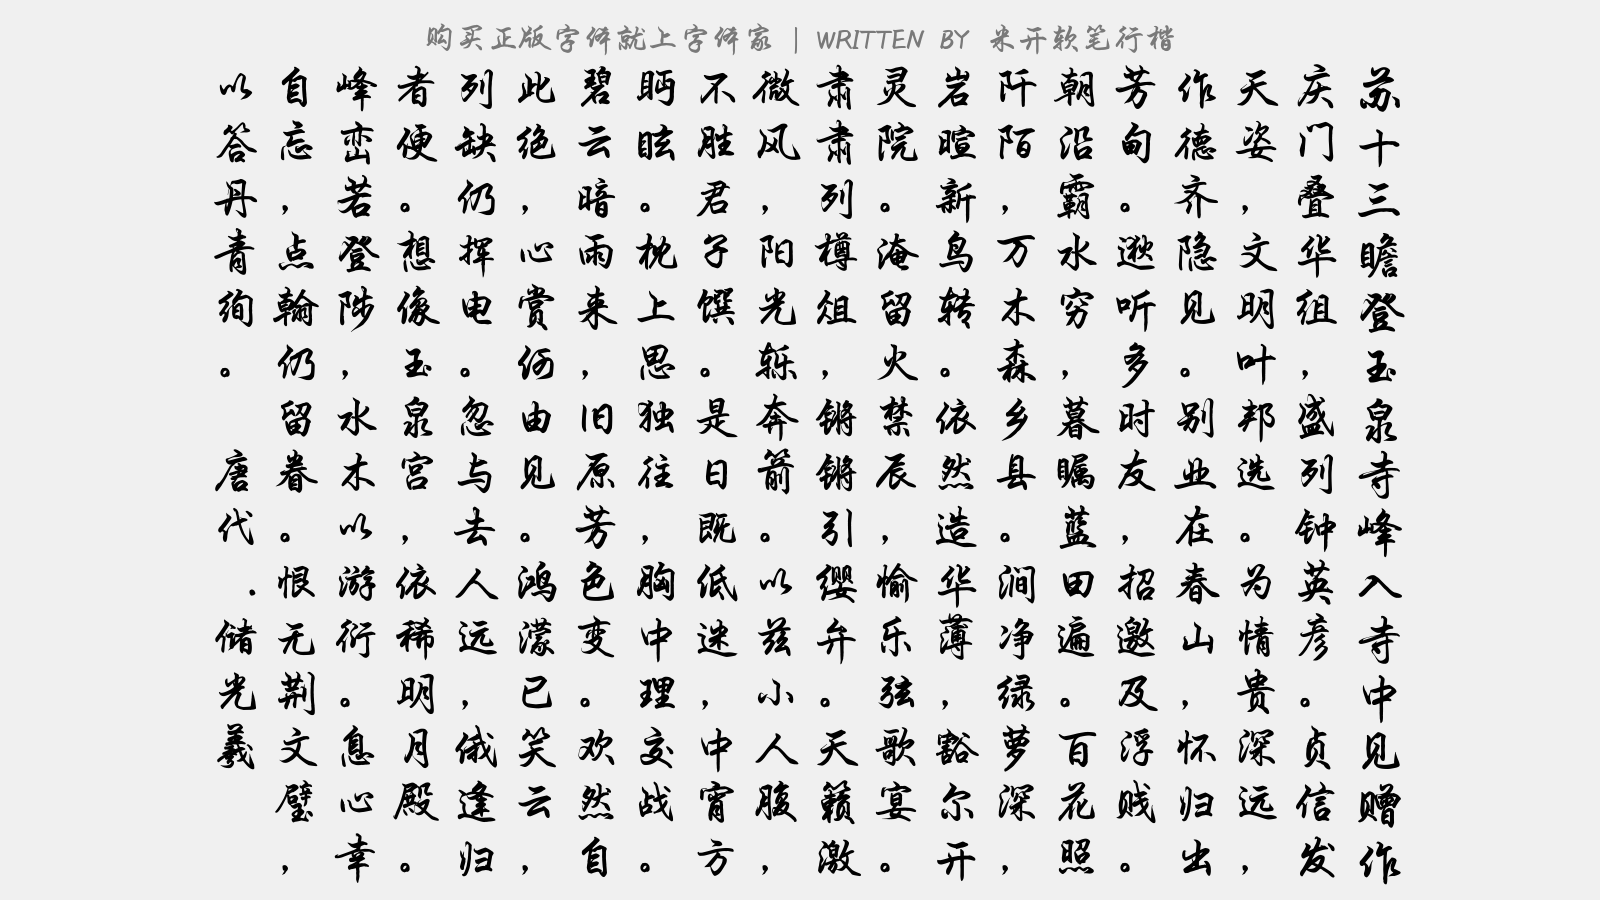 购买正版字体就上字体家 | WRITTEN BY 米开软笔行楷
苏十三瞻登玉泉寺峰入寺中见赠作
庆门叠华组，盛列钟英彦。贞信发
天姿，文明叶邦选。为情贵深远，
作德齐隐见。别业在春山，怀归出
芳甸。逖听多时友，招邀及浮贱。
朝沿霸水穷，暮瞩蓝田遍。百花照
阡陌，万木森乡县。涧净绿萝深，
岩暄新鸟转。依然造华薄，豁尔开
灵院。淹留火禁辰，愉乐弦歌宴。
肃肃列樽俎，锵锵引缨弁。天籁激
微风，阳光轹奔箭。以兹小人腹，
不胜君子馔。是日既低迷，中宵方
眄眩。枕上思独往，胸中理交战。
碧云暗雨来，旧原芳色变。欢然自
此绝，心赏何由见。鸿濛已笑云，
列缺仍挥电。忽与去人远，俄逢归
者便。想像玉泉宫，依稀明月殿。
峰峦若登陟，水木以游衍。息心幸
自忘，点翰仍留眷。恨无荆文璧，
以答丹青绚。 唐代.储光羲